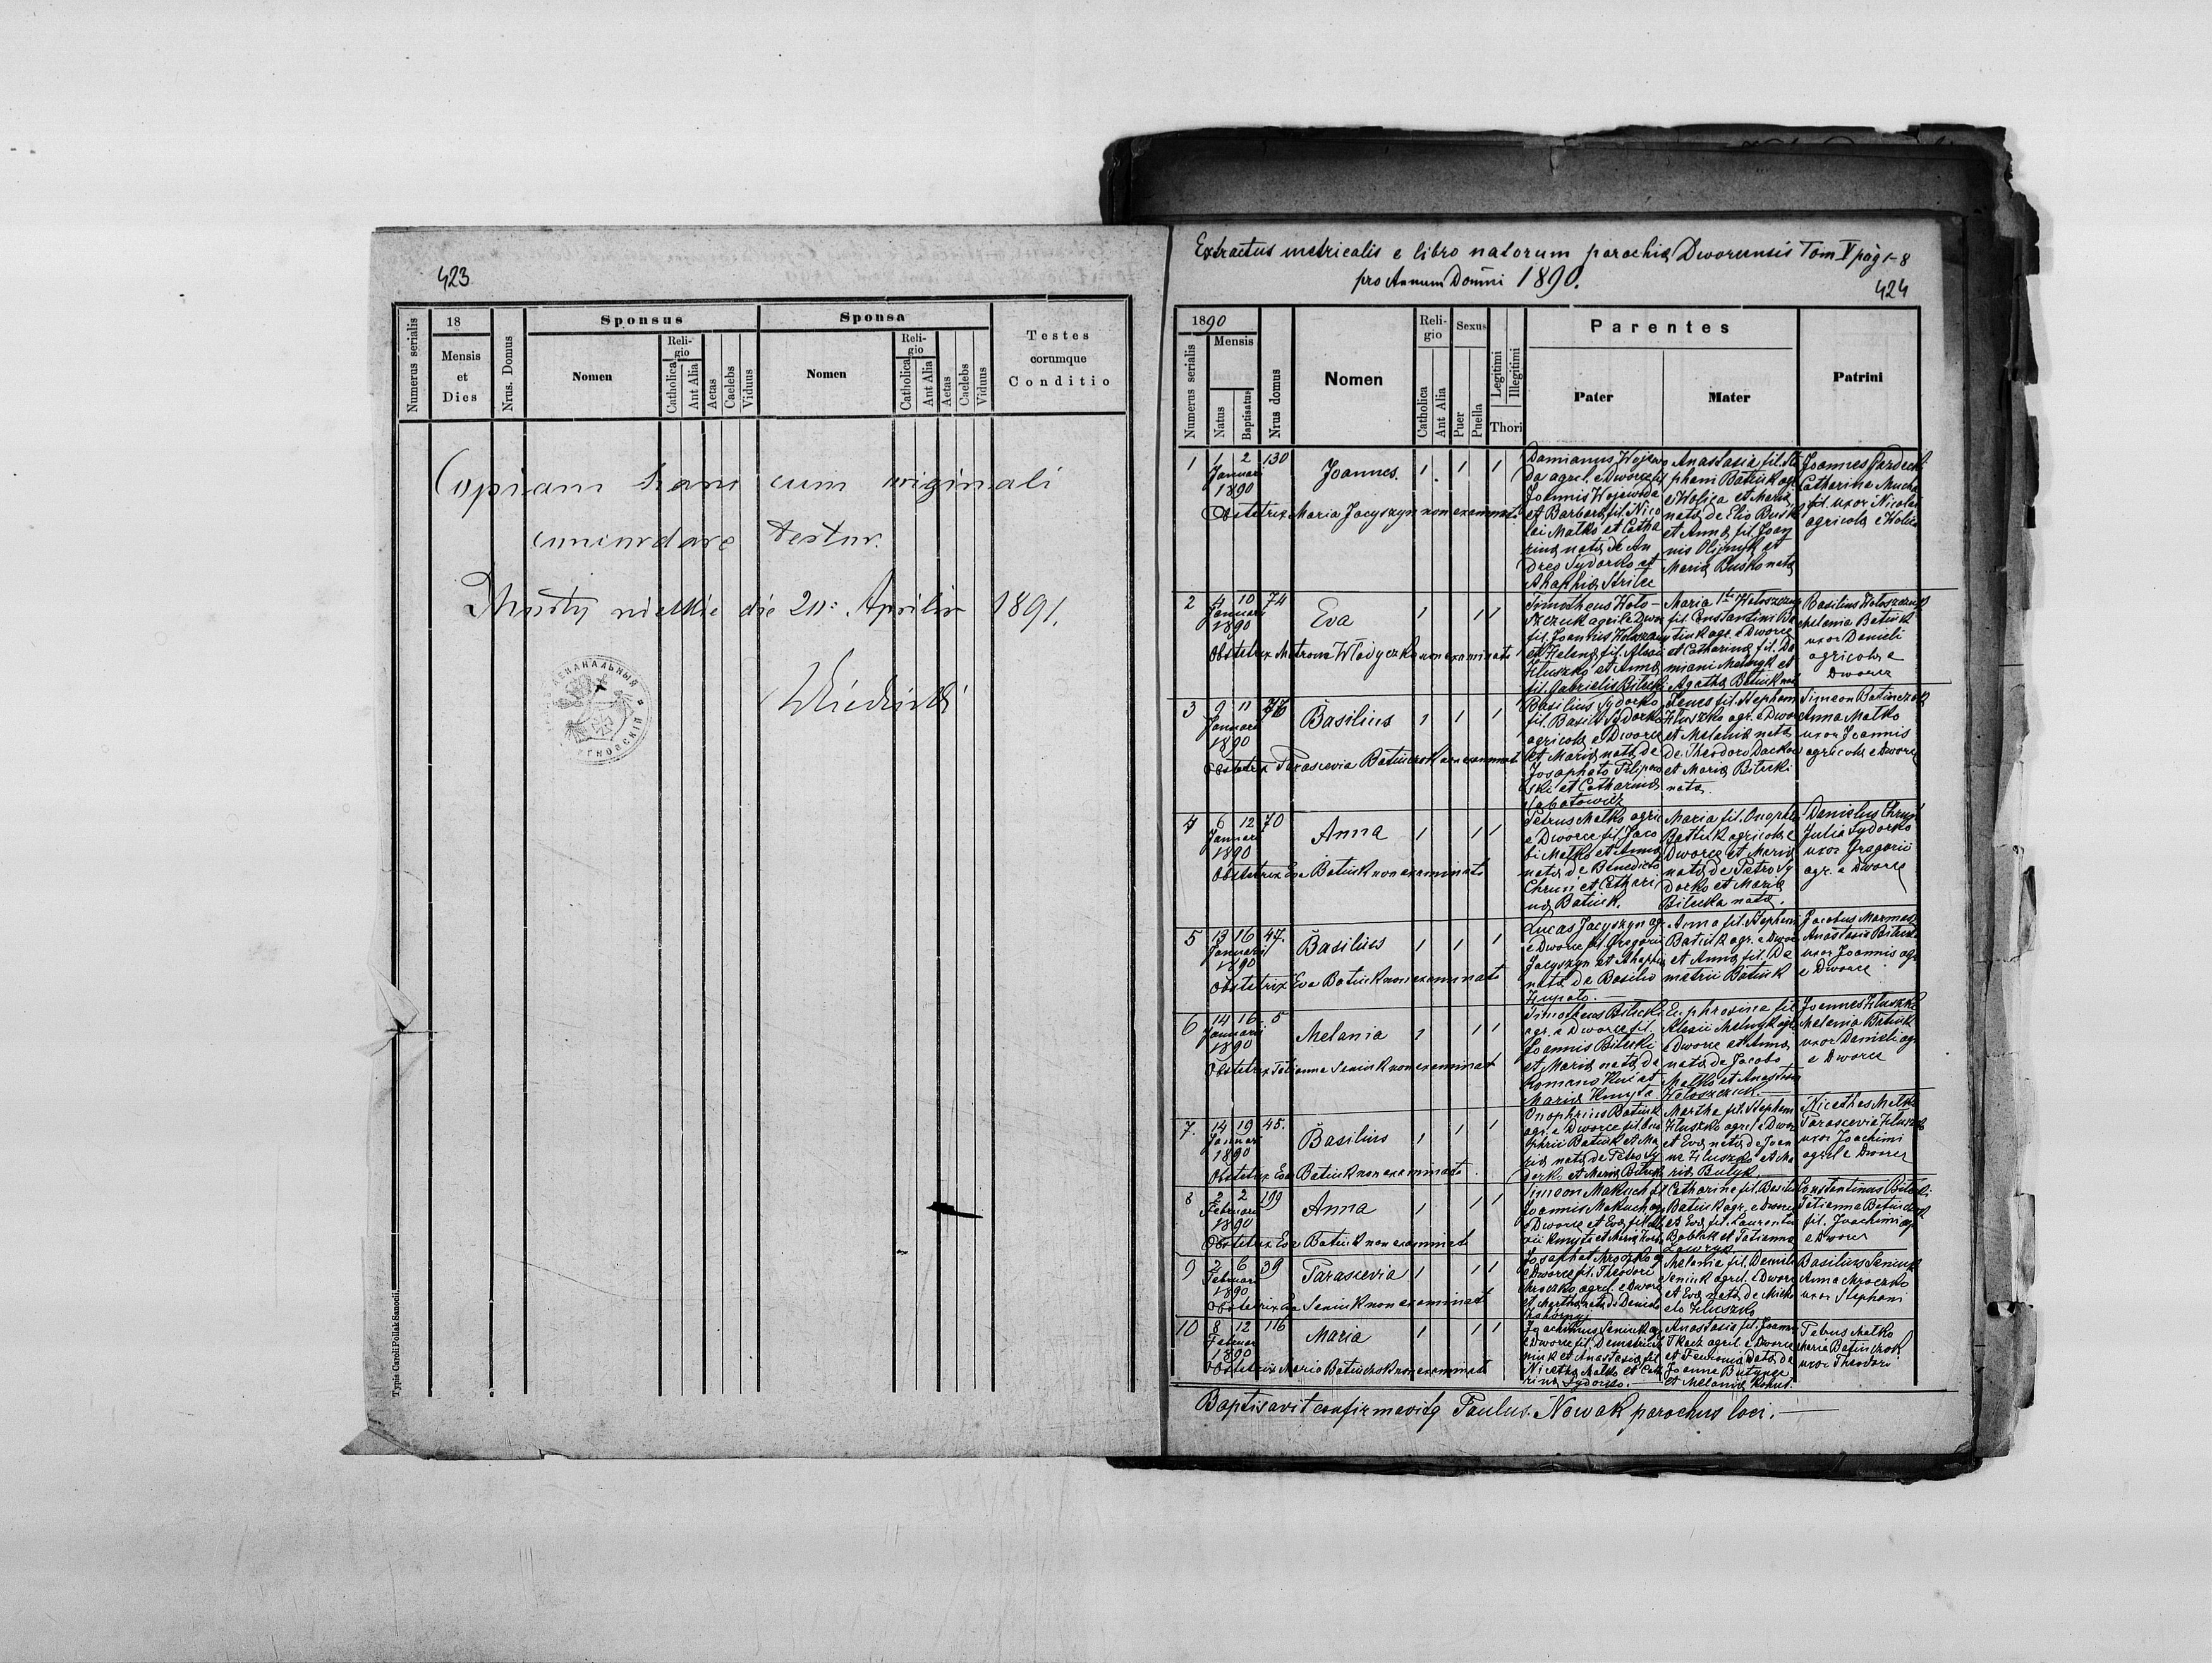 423
Numerus serialis
18
Mensis
et
Dies
Nrus. Domus
Sponsus
Nomen
Reli-
gio
Catholica
Aut Alia
Aetas
Caelebs
Viduus
Sponsa
Nomen
Reli-
gio
Catholica
Aut Alia
Aetas
Caelebs
Viduus
Testes
eorumque
Conditio
Copiam hanc cum originali
concordare testor.
Mosty wielkie die 20: Aprilis 1891.
Typis Caroli Pollak Sanoci
Extractus metricalis e libro natorum parochiæ Dworcensis Tom V pag 1-8
pro Annum Domini 1890.
424
Numerus serialis
1890
Mensis
Natus
Baptisatus
Nrus domus
Nomen
Reli-
gio
Catholica
Aut Alia
Sexus
Puer
Puella
Legitimi
Illegitimi
Thori
Parentes
Pater
Mater
Patrini
1 1 2 130 Joannes. 1 1 1
Januari
1890
Obstetrix Maria Jacyszyn non examinata
Damianus Wojewo
da agrl. e Dworce fil
Joannis Wojewoda
et Barbara fil. Nico
lai Matko et Catha
rina nata de An
drea Sydorko et
Ahaphia Strilec
Anastasia fil. Ste
phani Batiuk agr.
e Wolica et Maria
nata de Elio Busk
et Anna fil. Joan
nis Olijnyk et
Maria Busko nata
Joannes Gardecki
Catharina Mucha
fil. uxor Nicolai
agricola e Wolica
2 4 10 74 Eva 1 1 1
Januari
1890
Obstetrix Matrona Włodyczka non examinata
Timotheus Hoło-
szczuk agril e Dwor
fil. Joannis Hołoszczu
et Helena fil. Alexi
Hluszko et Anna
fil. Gabrielis Bilecki
Maria Hołoszczuk
fil. Constantini Ba
tiuk agr. e Dworce
et Catharina fil. Da
miani Melnyk et
Agatha Batiuk nat
Basilius Hołoszczuk
Melania Batiuk
uxor Danieli
agricola e
Dworce
3 9 11 Basilius 1 1 1
Januari
1890
Obstetrix Parascevia Batiuczok non examinat
Basilius Sydorko
fil. Basili Sydorko
agricola e Dworce
et Maria nata de
Josaphato Pilipow
ski et Catharina
Sabatowicz
fil. Stephani
Hluszko agr. e Dworce
et Melania nata
de Theodoro Dackow
et Maria Bilecki
nata.
Simeon Batiuczok
Anna Matko
uxor Joannis
agricola e Dworce
4 6 12 70 Anna 1 1 1
Januari
1890
Obstetrix Eva Batiuk non examinata
Petrus Matko agri
e Dworce fil. Jaco
bi Matko et Anna
nata de Benedicto
Chrun et Cathari
na Batiuk.
Maria fil. Onophri
Batiuk agricola e
Dworce et Maria
nata de Petro Sy
dorko et Maria
Bilecka nata.
Danielus Chrun
Julia Sydorko
uxor Gregorii
agr. e Dworce
5 13 16 47. Basilius 1 1 1
Januari
1890
Obstetrix Eva Batiuk non examinata
Lucas Jacyszyn agr.
e Dworce fil. Gregorii
Jacyszyn et Ahaphia
nata de Basilio
Hupalo.
Anna fil. Stephani
Batiuk agr. e Dworce
et Anna fil. De
metrii Batiuk
Jacobus Marmasz
Anastasia Bilecka
uxor Joannis agr
e Dworce
6 14 16 5 Melania 1 1 1
Januarii
1890
Obstetrix Tatianna Seniuk non examinat
Timotheus Bilecki
agr. e Dworce fil.
Joannis Bilecki
et Maria nata de
Romano Kuc et
Maria Kmyta
Euphrosina fil
Alexii Melnyk agr
e Dworce et Anna
nata de Jacobo
Matko et Anastasia
Hołoszczuk.
Joannes Hluszko
Melania Batiuk
uxor Danieli agr
e Dworce
7. 14 19 45. Basilius 1 1 1
Januari
1890
Obstetrix Eva Batiuk non examinata
Onophrius Batiuk
agr. e Dworce fil. Ono
phrii Batiuk et Ma
ria nata de Petro Sy
dorko et Maria Bilecki
Martha fil. Stephani
Hluszko agrl e Dwor
et Eva nata de Joan
ne Hluszko et Ma
ria Butyk.
Nicethas Matko
Parascevia Hluszko
uxor Joachimi
agrl e Dworce
8 2 2 199 Anna 1 1 1
Februari
1890
Obstetrix Eva Batiuk non examinat
Simeon Makuch fil
Joannis Makuch agr
e Dworce et Eva fil. Ale
xii Kmyta et Maria
Catharina fil. Basilii
Batiuk agr. e Dworce
et Eva fil. Laurentii
Bobłak et Tatianna
Constantinus Bilecki
Tatianna Batiuczok
fil. Joachimi agr
e Dworce
9 2 6 39 Parascevia 1 1 1
Februari
1890
Obstetrix Eva Seniuk non examinat
Josaphat Mroczko agr
e Dworce fil. Theodori
Mroczko agril. e Dworce
et Martha nata de Daniele
Melania fil. Danieli
Seniuk agril. e Dworce
et Eva nata de Micha
elo Hluszko
Basilius Seniuk
Anna Mroczko
uxor Stephani
10 8 12 116 Maria 1 1 1
Februar
1890
Obstetrix Maria Batiuczok non examinat
Joachimus Seniuk agr
e Dworce fil. Demetrii Se
niuk et Anastasia fil.
Nicetha Matko et Cath
rina Sydorko.
Anastasia fil. Joannis
Tkacz agril e Dworce
et Fewronia nata de
Joanne Butynec
et Melania Kohut.
Petrus Matko
Maria Batiuczok
uxor Theodori
Baptisavit confirmavitq Paulus Nowak parochus loci.